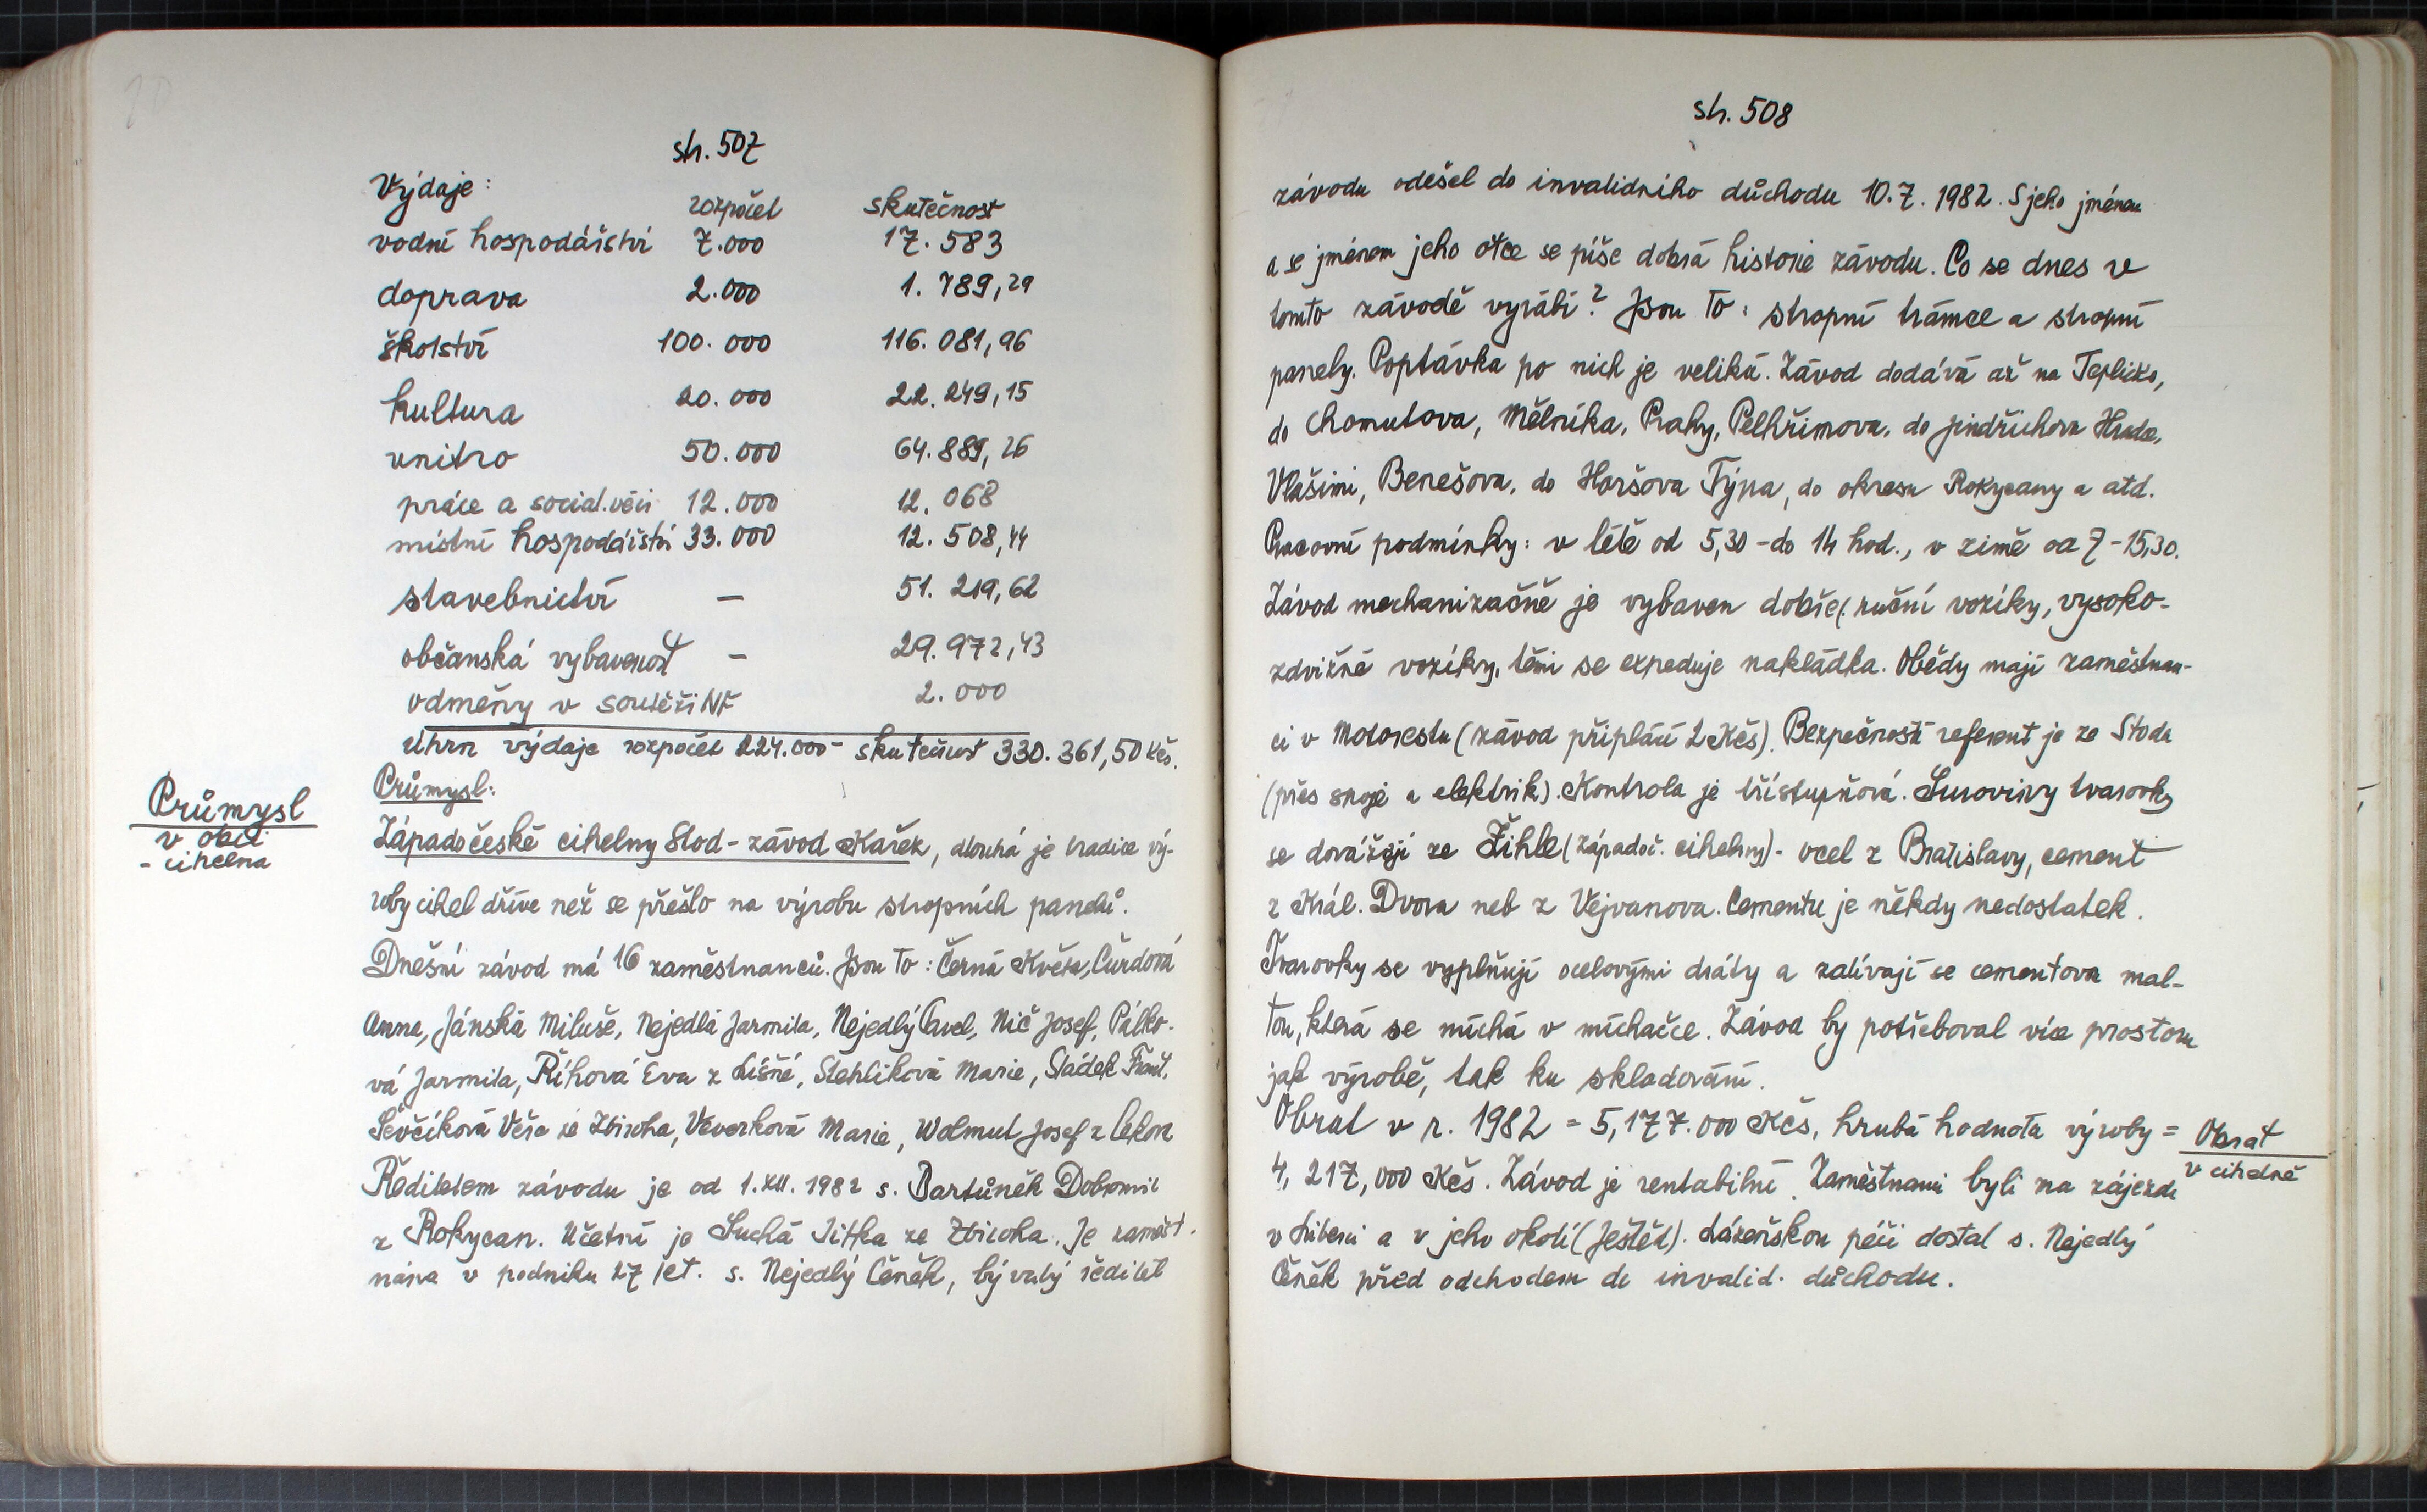 str. 507
Výdaje:
rozpočet skutečnost
vodní hospodářství 7.000 17.583
doprava 2.000 1.789,29
školství 100.000 116.081,96
kultura 20.000 22.249,15
vnitro 50.000 64.889,26
práce a social. věci 12.000 12.068
místní hospodářství 33.000 12.508,44
stavebnictví — 51.219,62
občanská vybavenost — 29.972,43
odměny v soutěži NF 2.000
úhrn výdaje rozpočet 224.000 - skutečnost 330.361,50 Kčs.
Průmysl
v obci
- cihelna
Průmysl:
Západočeské cihelny Stod - závod Kařez, dlouhá je tradice vý-
roby cihel dříve než se přešlo na výrobu stropních panelů.
Dnešní závod má 16 zaměstnanců. Jsou to: Černá Květa, Čurdová
Anna, Jánská Miluše, Nejedlá Jarmila, Nejedlý Pavel, Nič Josef, Pálko-
vá Jarmila, Říhová Eva z Líšné, Stehlíková Marie, Sládek Frant.
Ševčíková Věra ze Zbiroha, Veverková Marie, Wolmut Josef z Cekova
Ředitelem závodu je od 1.XII. 1982 s. Bartůněk Dobromil
z Rokycan. Účetní je Suchá Jitka ze Zbiroha. Je zaměst-
nána v podniku 27 let. s. Nejedlý Čeněk, bývalý ředitel
str. 508
závodu odešel do invalidního důchodu 10.7.1982. S jeho jménem
a se jménem jeho otce se píše dobrá historie závodu. Co se dnes v
tomto závodě vyrábí? Jsou to: stropní trámce a stropní
panely. Poptávka po nich je veliká. Závod dodává až na Teplicko,
do Chomutova, Mělníka, Prahy, Pelhřimova, do Jindřichova Hradce,
Vlašimi, Benešova, do Horšova Týna, do okresu Rokycany a atd.
Pracovní podmínky: v létě od 5,30 - do 14 hod., v zimě od 7 - 15,30.
Závod mechanizačně je vybaven dobře (ruční vozíky, vysoko-
zdvižné vozíky, těmi se expeduje nakládka. Obědy mají zaměstnan-
ci v Motorestu (závod připlácí 2 Kčs). Bezpečnost. referent je ze Stoda
(přes spoje a elektrik). Kontrola je třístupňová. Suroviny tvarovky
se dovážejí ze Žihle (západoč. cihelny) - ocel z Bratislavy, cement
z Král. Dvora neb z Vejvanova. Cementu je někdy nedostatek.
Tvarovky se vyplňují ocelovými dráty a zalívají se cementovou mal-
tou, která se míchá v míchačce. Závod by potřeboval více prostoru
jak výrobě, tak ku skladování.
Obrat v r. 1982 = 5,177.000 Kčs, hrubá hodnota výroby =
4,217,000 Kčs. Závod je rentabilní. Zaměstnanci byli na zájezdu
v Liberci a v jeho okolí (Ještěd). Lázeňskou péči dostal s. Nejedlý
Čeněk před odchodem do invalid. důchodu.
Obrat
v cihelně